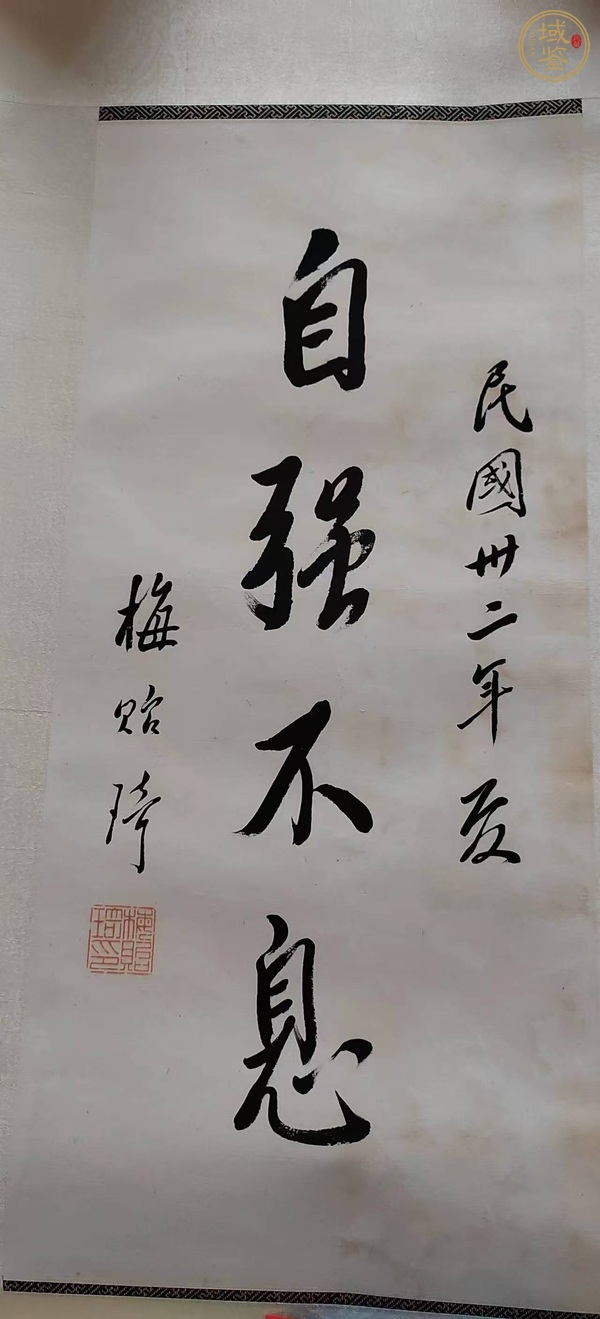 民國卅二年夏
自强不息
梅貽琦
梅貽琦印
域鉴